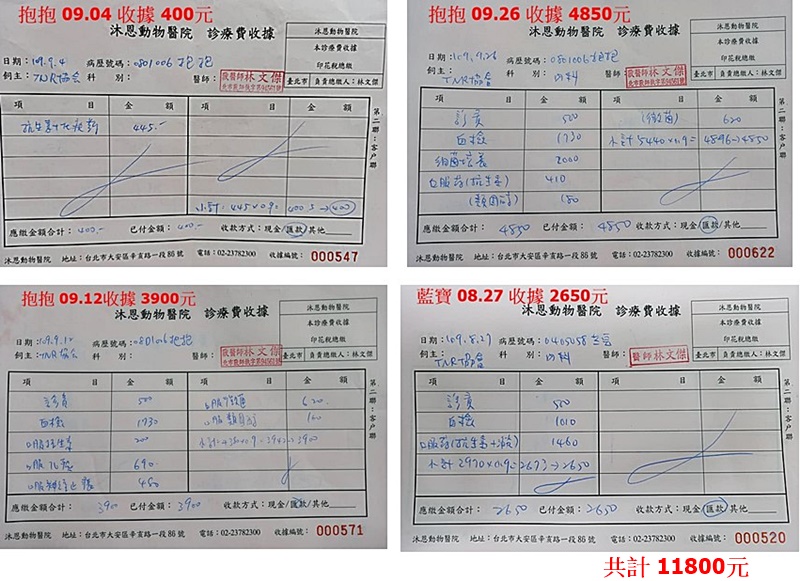 抱抱 09.04 收據 400元
沐恩動物醫院 診療費收據
沐恩動物醫院
本診療費收據
印花稅總繳
臺北市 負責總繳人：林文傑
日期：109.9.4 病歷號碼：0801006抱抱
飼主：TNR協會 科 別： 醫師：
獸醫師林文傑
項 目 金 額 項 目 金 額
445.-
小計：445x0.9= 400.5→400
第二聯：客戶聯
應繳金額合計：400.- 已付金額：400.- 收款方式：現金/匯款/其他
沐恩動物醫院 地址：台北市大安區辛亥路一段86號 電話：02-23782300 收據編號：000547
抱抱 09.26 收據 4850元
沐恩動物醫院 診療費收據
沐恩動物醫院
本診療費收據
印花稅總繳
臺北市 負責總繳人：林文傑
日期：109.9.26 病歷號碼：0801006抱抱
飼主：TNR協會 科 別：內科 醫師：
獸醫師林文傑
項 目 金 額 項 目 金 額
診費 500 620
血檢 1730 小計5440x0.9=4896→4850
細菌培養 2000
口服葯(抗生素) 410
(類固醇) 180
第二聯：客戶聯
應繳金額合計：4850 已付金額：4850 收款方式：現金/匯款/其他
沐恩動物醫院 地址：台北市大安區辛亥路一段86號 電話：02-23782300 收據編號：000622
抱抱 09.12收據 3900元
沐恩動物醫院 診療費收據
沐恩動物醫院
本診療費收據
印花稅總繳
臺北市 負責總繳人：林文傑
日期：109.9.12 病歷號碼：0801006抱抱
飼主：TNR協會 科 別： 醫師：
獸醫師林文傑
項 目 金 額 項 目 金 額
診費 500 620
血檢 1730 口服類固醇
口服抗生素 200
690
480
第二聯：客戶聯
應繳金額合計：3900 已付金額：3900 收款方式：現金/匯款/其他
沐恩動物醫院 地址：台北市大安區辛亥路一段86號 電話：02-23782300 收據編號：000571
藍寶 08.27 收據 2650元
沐恩動物醫院 診療費收據
沐恩動物醫院
本診療費收據
印花稅總繳
臺北市 負責總繳人：林文傑
日期：109.8.27 病歷號碼：0405058
飼主：TNR協會 科 別：內科 醫師：
醫師林文傑
項 目 金 額 項 目 金 額
診費 500
血檢 1010
1460
小計2970x0.9=2673→2650
第二聯：客戶聯
應繳金額合計：2650 已付金額：2650 收款方式：現金/匯款/其他
沐恩動物醫院 地址：台北市大安區辛亥路一段86號 電話：02-23782300 收據編號：000520
共計 11800元